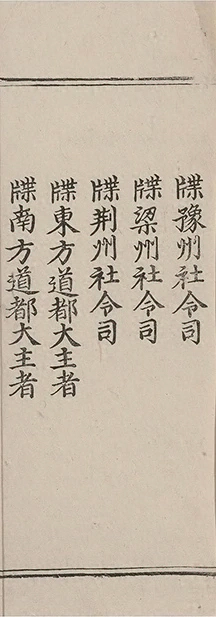 牒豫州社令司
牒梁州社令司
牒荆州社令司
牒東方道都大主者
牒南方道都大主者